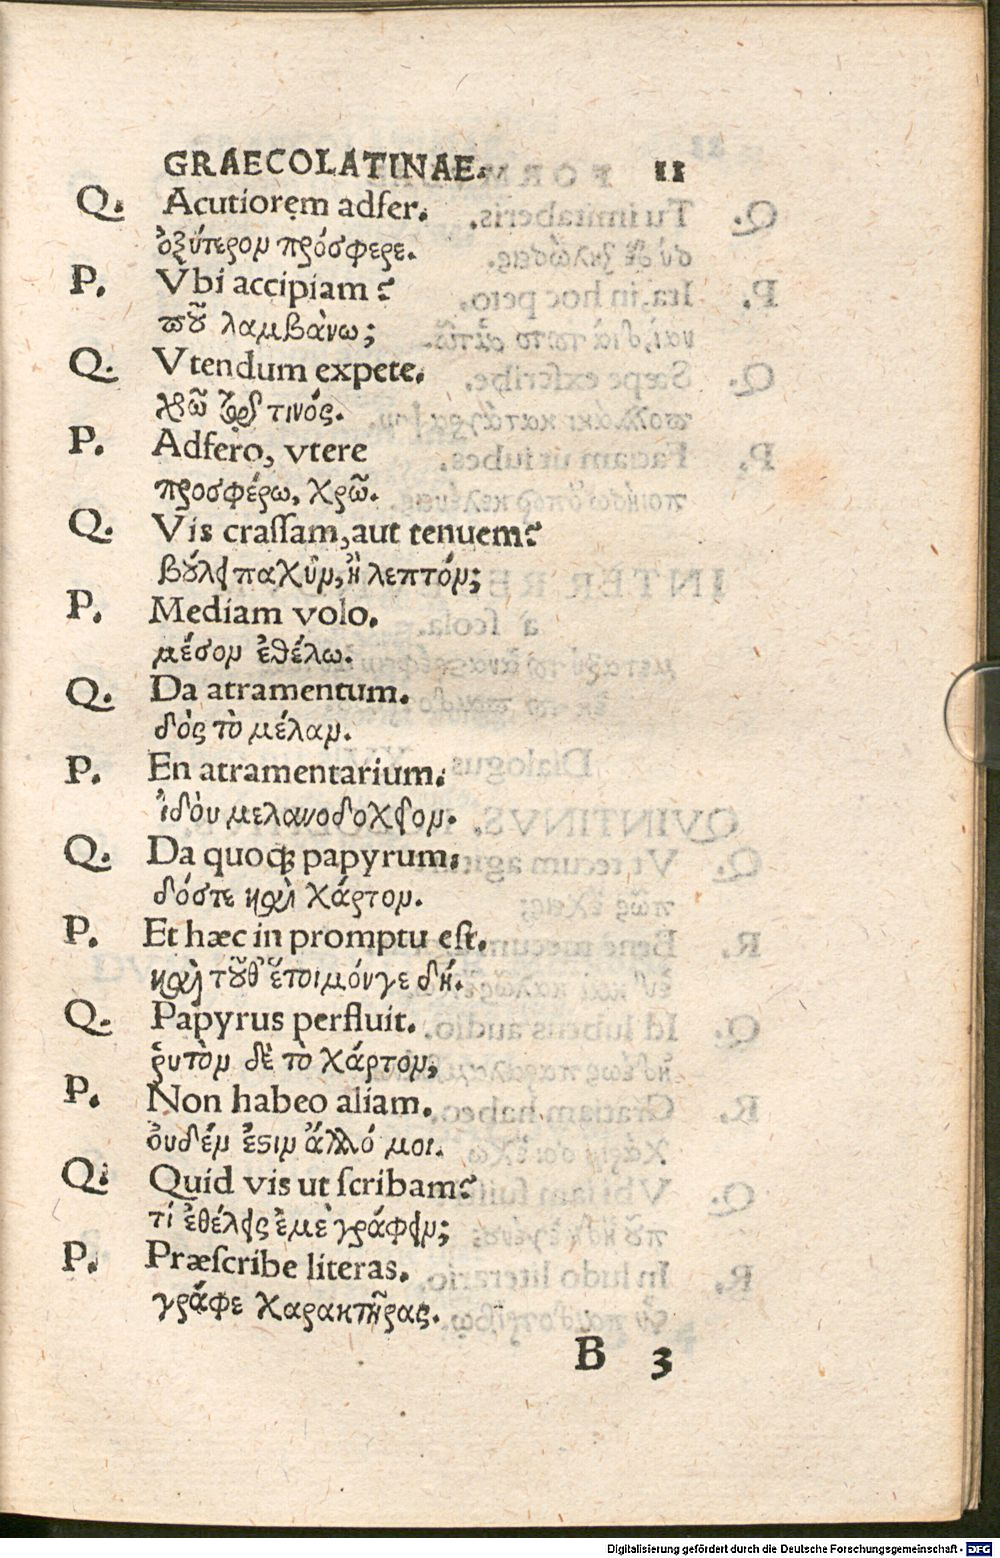 GRAECOLATINAE. 11
Q. Acutiorem adfer.
ὀξύτερομ πρόσφερε.
P. Vbi accipiam?
ποῦ λαμβὰνω;
Q. Vtendum expete.
χρῶ παρὰ τινός.
P. Adfero, vtere
προσφέρω, χρῶ.
Q. Vis crassam, aut tenuem?
βούλει παχὺμ, ἢ λεπτόμ;
P. Mediam volo.
μέσομ ἐθέλω.
Q. Da atramentum.
δὸς τὸ μέλαμ.
P. En atramentarium.
ἰδὸυ μελανοδοχεῖομ.
Q. Da quoq; papyrum.
δόστε καὶ χάρτομ.
P. Et hæc in promptu est.
καὶ τοῦθ ἕτοιμόνγε δή.
Q. Papyrus perfluit.
ῥυτὸμ δὲ τὸ χάρτομ,
P. Non habeo aliam.
ὀυδέμ ἐστιμ ἄλλό μοι.
Q. Quid vis ut scribam?
τί ἐθέλεις ἐμὲ γράφειμ;
P. Præscribe literas.
γράφε χαρακτῆρας.
B 3
Digitalisierung gefördert durch die Deutsche Forschungsgemeinschaft - DFG